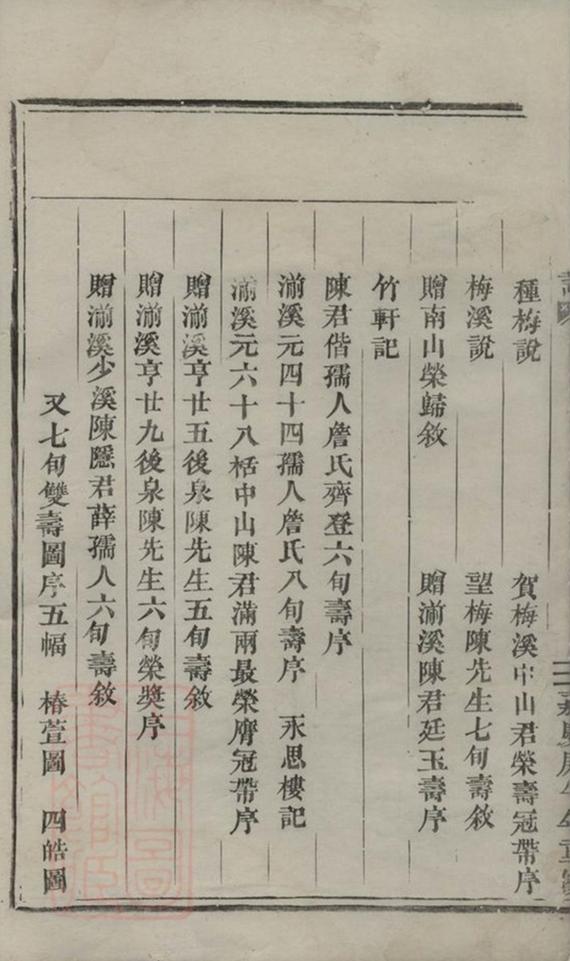 種梅說　賀梅溪中山君榮壽冠帶序
梅溪說　望梅陳先生七旬壽敘
贈南山榮歸敘　贈湔溪陳君廷玉壽序
竹軒記
陳君偕孺人詹氏齊登六旬壽序
湔溪元四十四孺人詹氏八旬壽序　永思樓記
湔溪元六十八栝中山陳君滿兩最榮膺冠帶序
贈湔溪亨廿五後泉陳先生五旬壽敘
贈湔溪亨廿九後泉陳先生六旬榮獎序
贈湔溪少溪陳隱君薛孺人六旬壽敘
又七旬雙壽圖序五幅　椿萱圖　四皓圖